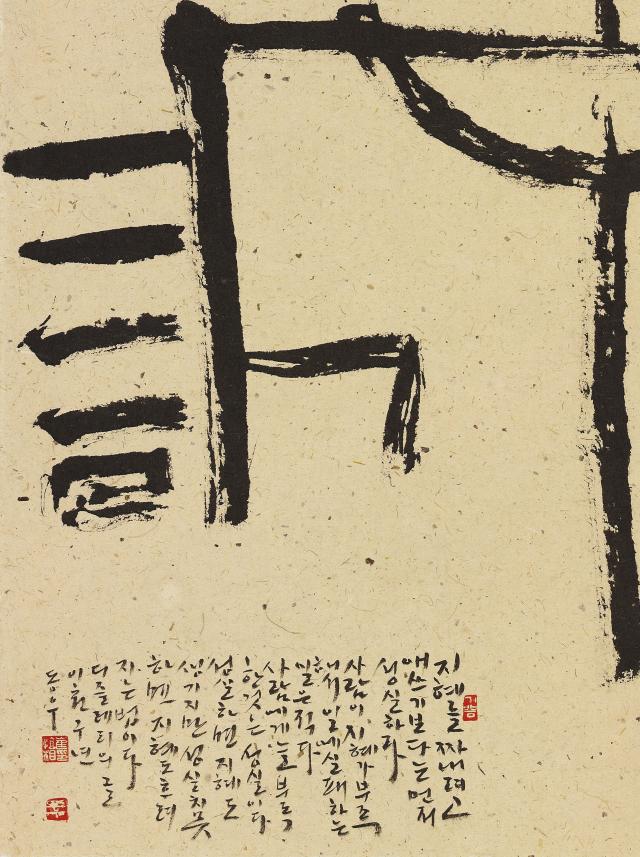 지혜를 짜내려고
애쓰기보다는 먼저
성실하라
사람이 지혜가 부족
해서 일에 실패하는
일은 적다
사람에게 늘 부족
한 것은 성실이다
성실하면 지혜도
생기지만 성실치 못
하면 지혜도 흐려
지는 법이다
디즐레리의 글
이천구년
동우